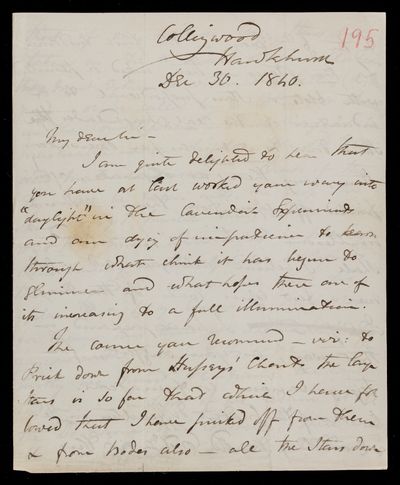 Collingwood
195
Hawkhurst
Dec 30. 1840.
My dear Sir –
I am quite delighted to hear that
you have at last worked your way into
"daylight" in the Cavendish Experiments
and am dying of impatience to learn
through what chink it has begun to
glimmer and what hopes there are of
its increasing to a full illumination.
The course you recommend – viz: to
Prick down from Hussey's Charts the Cap
Stars is so far that which I have fol
lowed that I have pricked off from them
& from Bodes also – all the Stars down